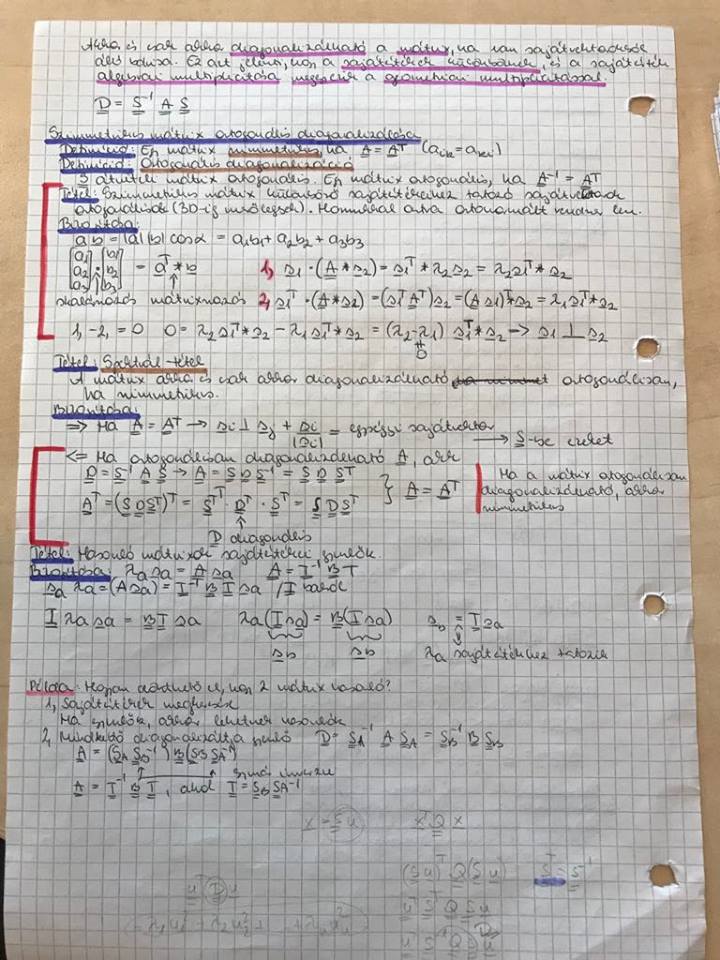 Akkor és csak akkor diagonalizálható a mátrix, ha van sajátvektorokból
álló bázisa. Ez azt jelenti, hogy a sajátértékek különbözőek, és a sajátérték
algebrai multiplicitása megegyezik a geometriai multiplicitással.
D = S⁻¹ A S
Szimmetrikus mátrix ortogonális diagonalizálása
Definíció: Egy mátrix szimmetrikus, ha, A = Aᵀ (aik = aki)
Definíció: Ortogonális diagonalizáció
S átviteli mátrix ortogonális. Egy mátrix ortogonális, ha A⁻¹ = Aᵀ
Tétel: Szimmetrikus mátrix különböző sajátértékeihez tartozó sajátvektorok
ortogonálisak (3D-ig merőlegesek). Normálással ortonormált rendszer lesz.
Bizonyítás:
a b = |a| |b| cosα = a1b1 + a2b2 + a3b3
[a1 a2 a3] · [b1 b2 b3] = aᵀ * b
1, s1 · (A * s2) = s1ᵀ * λ2 s2 = λ2 s1ᵀ * s2
skalárszorzás mátrixszorzás 2, s1ᵀ · (A * s2) = (s1ᵀ Aᵀ) s2 = (A s1)ᵀ * s2 = λ1 s1ᵀ * s2
1, -2, = 0 0 = λ2 s1ᵀ * s2 − λ1 s1ᵀ * s2 = (λ2 − λ1) s1ᵀ * s2 → s1 ⊥ s2
≠ 0
Tétel: Spektrál-tétel
A mátrix akkor és csak akkor diagonalizálható ortogonálisan,
ha szimmetrikus.
Bizonyítás:
⇒ Ha A = Aᵀ → si ⊥ sj + si/|si| = egységnyi sajátvektor
→ S-be ezeket
<= Ha ortogonálisan diagonalizálható A, akkor
D = S⁻¹ A S → A = S D S⁻¹ = S D Sᵀ
Aᵀ = (S D Sᵀ)ᵀ = Sᵀᵀ · Dᵀ · Sᵀ = S D Sᵀ } A = Aᵀ
D diagonális
Ha a mátrix ortogonálisan
diagonalizálható, akkor
szimmetrikus
Tétel: Hasonló mátrixok sajátértékei egyenlők.
Bizonyítás: λa sa = A sa A = T⁻¹ B T
sa λa = (A sa) = T⁻¹ B T sa /T balról
T λa sa = B T sa λa (T sa) = B (T sa) sb = T sa
sb sb
λa sajátértékhez tartozik
Példa: Hogyan dönthető el, hogy 2 mátrix hasonló?
1, Sajátértékek
Ha egyenlők, akkor lehetnek hasonlók
2, Mindkettő diagonalizáltja egyenlő D = SA⁻¹ A SA = SB⁻¹ B SB
A = (SA SB⁻¹) B (SB SA⁻¹)
egymás inverze
A = T⁻¹ B T, ahol T = SB SA⁻¹
x = S u xᵀ Q x
(S u)ᵀ Q (S u) Sᵀ = S⁻¹
uᵀ D u
uᵀ Sᵀ Q S u